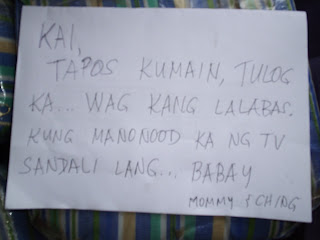 KAI,
TAPOS KUMAIN, TULOG
KA... WAG KANG LALABAS.
KUNG MANONOOD KA NG TV
SANDALI LANG... BABAY
MOMMY & CHING